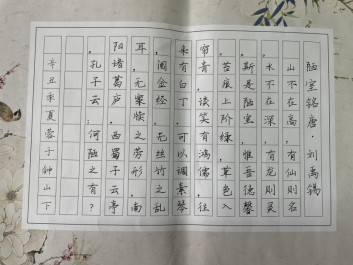 陋室铭唐·刘禹锡
山不在高，有仙则名
。水不在深，有龙则灵
。斯是陋室，惟吾德馨
。苔痕上阶绿，草色入
帘青。谈笑有鸿儒，往
来有白丁。可以调素琴
，阅金经。无丝竹之乱
耳，无案牍之劳形。南
阳诸葛庐，西蜀子云亭
。孔子云：何陋之有？
辛丑季夏蓉于钟山下